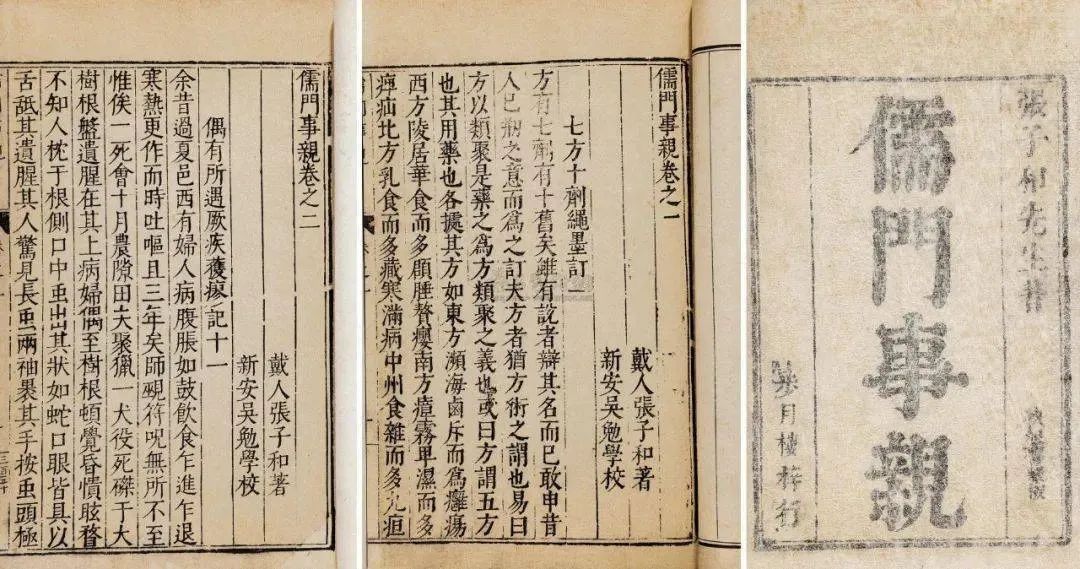 張子和先生著
儒門事親
映旭齋藏板
步月樓梓行
儒門事親卷之一
戴人張子和著
新安吳勉學校
七方十劑繩墨訂一
方有七劑有十舊矣雖有說者辯其名而已敢申昔
人已創之意而爲之訂夫方者猶方術之謂也易曰
方以類聚是藥之爲方類聚之義也或曰方謂五方
也其用藥也各據其方如東方瀕海鹵斥而爲癰瘍
西方陵居華食而多頵腄贅癭南方瘴霧卑濕而多
痺疝北方乳食而多藏寒滿病中州食雜而多九疸
儒門事親卷之二
戴人張子和著
新安吳勉學校
偶有所遇厥疾獲瘳記十一
余昔過夏邑西有婦人病腹脹如鼓飲食乍進乍退
寒熱更作而時吐嘔且三年矣師覡符呪無所不至
惟俟一死會十月農隙田夫聚獵一犬役死磔于大
樹根盤遺腥在其上病婦偶至樹根頓覺昏憒眩瞀
不知人枕于根側口中虫出其狀如蛇口眼皆具以
舌舐其遺腥其人驚見長虫兩袖裹其手按虫頭極